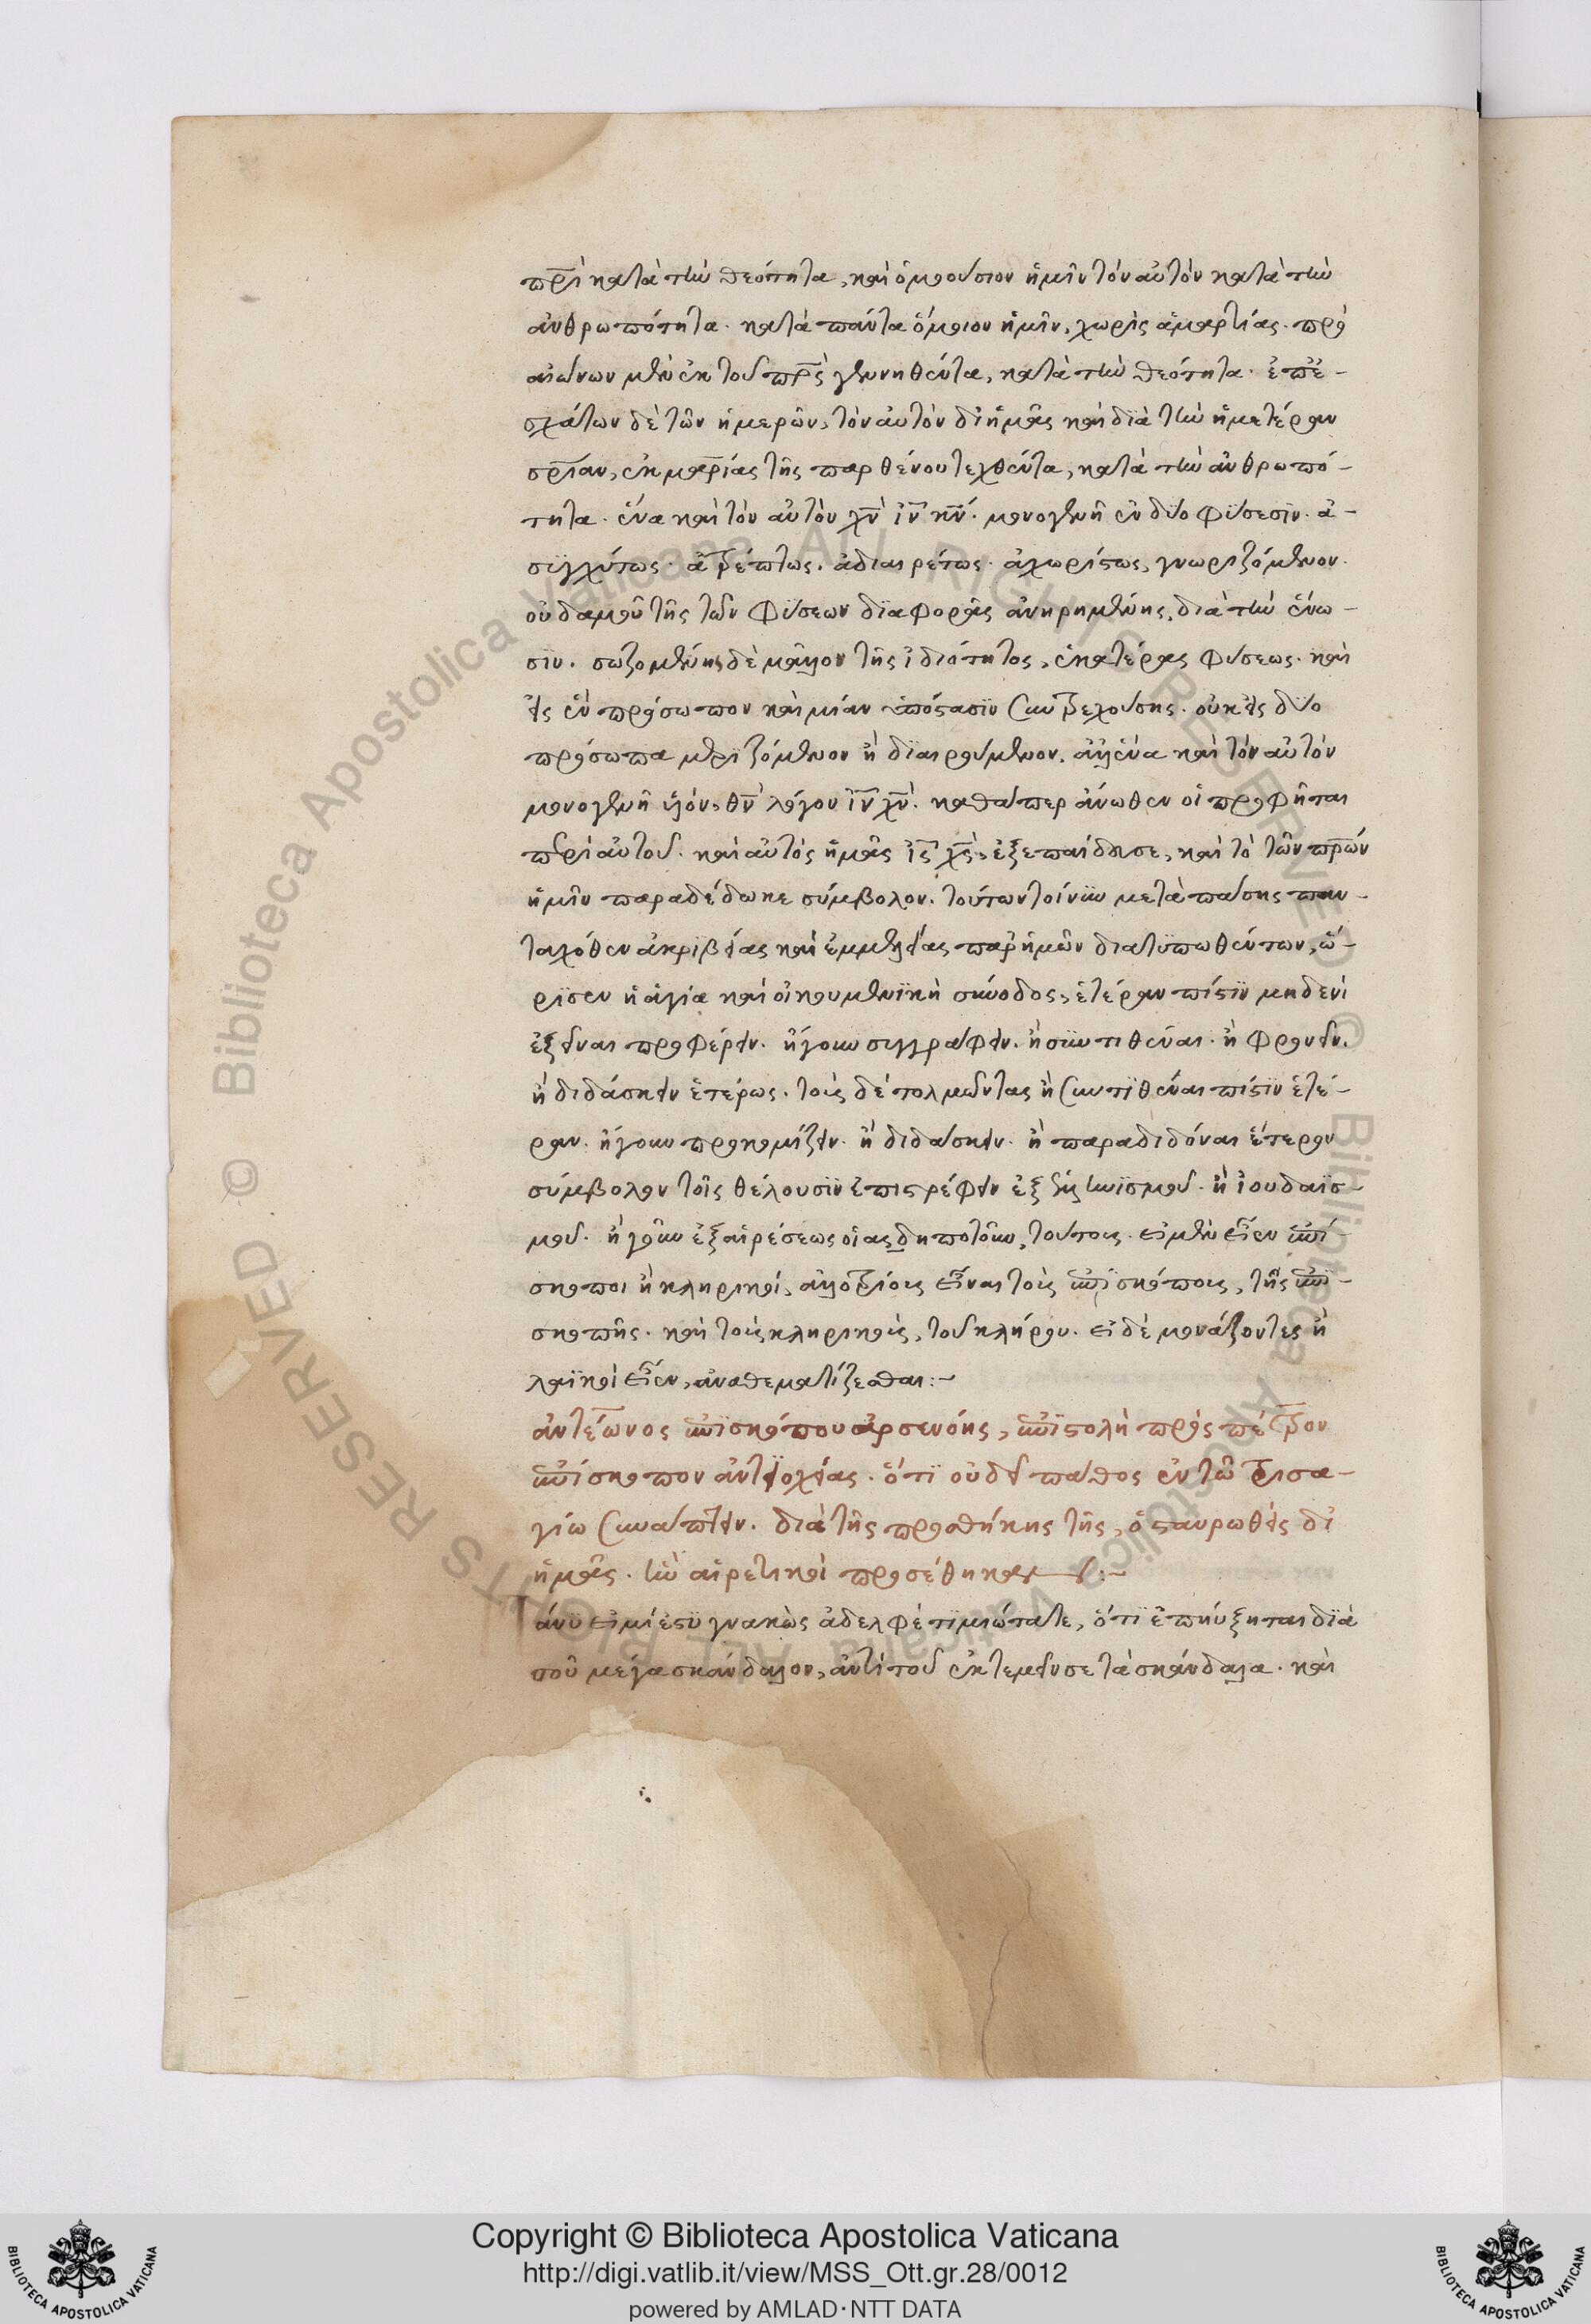 πρ̅ὶ κατὰ τὴν θεότητα, καὶ ὁμοούσιον ἡμῖν τὸν αὐτὸν κατὰ τὴν
ἀνθρωπότητα. κατὰ πάντα ὅμοιον ἡμῖν, χωρὶς ἁμαρτίας. πρὸ
αἰώνων μὲν ἐκ τοῦ πρ̅ς γεννηθέντα, κατὰ τὴν θεότητα. ἐπ' ἐ-
σχάτων δὲ τῶν ἡμερῶν, τὸν αὐτὸν δι' ἡμᾶς καὶ διὰ τὴν ἡμετέραν
σρ̅ίαν, ἐκ μαρίας τῆς παρθένου τεχθέντα, κατὰ τὴν ἀνθρωπό-
τητα. ἕνα καὶ τὸν αὐτὸν χν̅ ἰν̅ κν̅. μονογενῆ ἐν δύο φύσεσιν. ἀ-
συγχύτως. ἀτρέπτως. ἀδιαιρέτως. ἀχωρίστως, γνωριζόμενον.
οὐδαμοῦ τῆς τῶν φύσεων διαφορᾶς ἀνῃρημένης, διὰ τὴν ἕνω-
σιν. σωζομένης δὲ μᾶλλον τῆς ἰδιότητος, ἑκατέρας φύσεως. καὶ
εἰς ἓν πρόσωπον καὶ μίαν ὑπόστασιν συντρεχούσης. οὐκ εἰς δύο
πρόσωπα μεριζόμενον ἢ διαιρούμενον. ἀλλ' ἕνα καὶ τὸν αὐτὸν
μονογενῆ υἱόν, θν̅ λόγον ἰν̅ χν̅. καθάπερ ἄνωθεν οἱ προφῆται
περὶ αὐτοῦ. καὶ αὐτὸς ἡμᾶς ἰς̅ χς̅, ἐξεπαίδευσε, καὶ τὸ τῶν πρ̅ων
ἡμῖν παραδέδωκε σύμβολον. τούτων τοίνυν μετὰ πάσης παν-
ταχόθεν ἀκριβείας καὶ ἐμμελείας παρ' ἡμῶν διατυπωθέντων, ὥ-
ρισεν ἡ ἁγία καὶ οἰκουμενικὴ σύνοδος, ἑτέραν πίστιν μηδενὶ
ἐξεῖναι προφέρειν. ἤγουν συγγράφειν. ἢ συντιθέναι. ἢ φρονεῖν.
ἢ διδάσκειν ἑτέρως. τοὺς δὲ τολμῶντας ἢ συντιθέναι πίστιν ἑτέ-
ραν. ἤγουν προκομίζειν. ἢ διδάσκειν. ἢ παραδιδόναι ἕτερον
σύμβολον τοῖς θέλουσιν ἐπιστρέφειν ἐξ ἑλληνισμοῦ. ἢ ἰουδαϊσ-
μοῦ. ἢ γοῦν ἐξ αἱρέσεως οἱασδηποτοῦν, τούτους. εἰ μὲν εἶεν ἐπί-
σκοποι ἢ κληρικοί, ἀλλοτρίους εἶναι τοὺς ἐπισκόπους, τῆς ἐπι-
σκοπῆς. καὶ τοὺς κληρικοὺς, τοῦ κλήρου. εἰ δὲ μονάζοντες ἢ
λαϊκοὶ εἶεν, ἀναθεματίζεσθαι:~
ἀντέωνος ἐπισκόπου ἀρσενόης, ἐπιστολὴ πρὸς πέτρον
ἐπίσκοπον ἀντιοχείας. ὅτι οὐ δεῖ πάθος ἐν τῶ τρισα-
γίω συνάπτειν. διὰ τῆς προσθήκης τῆς, ὁ σταυρωθεὶς δι'
ἡμᾶς. ἣν αἱρετικοὶ προσέθηκαν:~
άνυ εἰμὶ ἐστυγνακὼς ἀδελφὲ τιμιώτατε, ὅτι ἐπηύξηται διὰ
σοῦ μέγα σκάνδαλον, ἀντὶ τοῦ ἐκτεμεῖν σε τὰ σκάνδαλα. καὶ
Copyright © Biblioteca Apostolica Vaticana
http://digi.vatlib.it/view/MSS_Ott.gr.28/0012
powered by AMLAD·NTT DATA
BIBLIOTECA APOSTOLICA VATICANA
BIBLIOTECA APOSTOLICA VATICANA
© Biblioteca Apostolica Vaticana ALL RIGHTS RESERVED
© Biblioteca Apostolica Vaticana ALL RIGHTS RESERVED